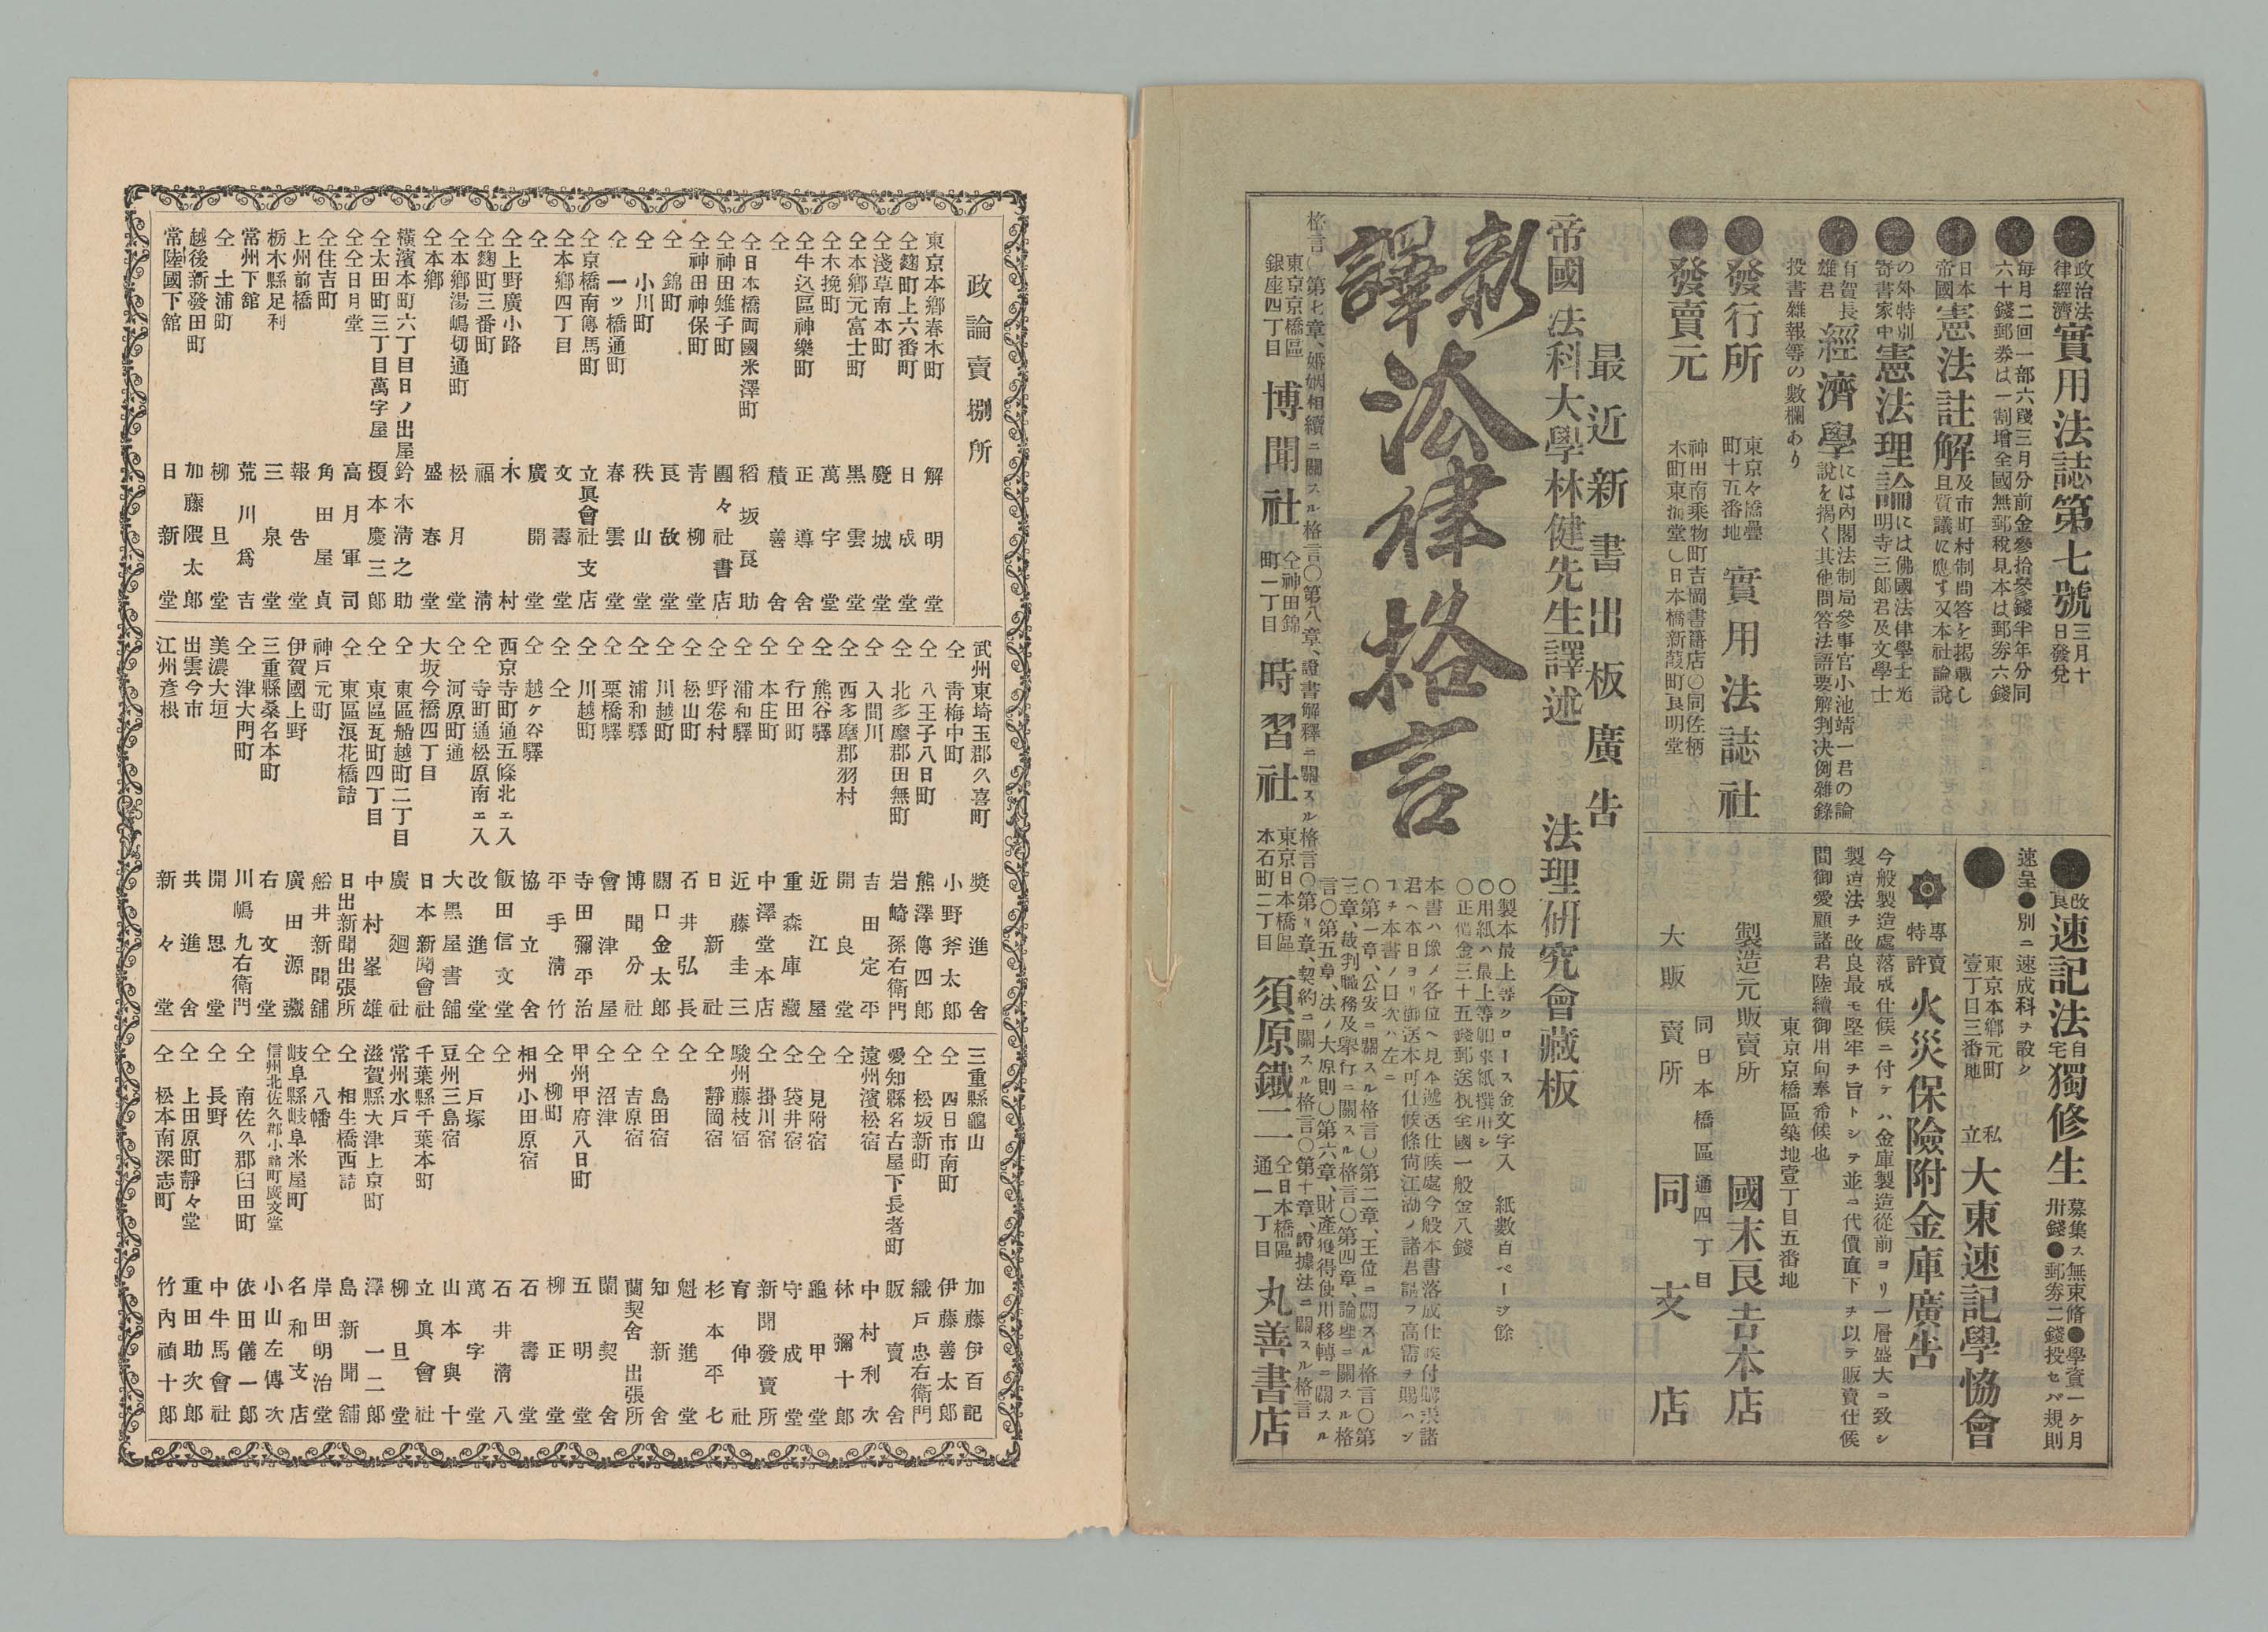 政治法律經濟
實用法誌第七號
三月十日發兌
毎月二回一部六錢三月分前金參拾參錢半年分同
六十錢郵券は一割增全國無郵稅見本は郵券六錢
日本帝國
憲法註解
及市町村制問答を揭載し
且質議に應す又本社論說
の外特別
寄書家中
憲法理論
には佛國法律學士光
明寺三郎君及文學士
有賀長
雄君
經濟學
には內閣法制局參事官小池靖一君の論
說を揭く其他問答法語要解判決例雜錄
投書雜報等の數欄あり
發行所
東京々橋疊
町十五番地
實用法誌社
發賣元
神田南乘物町吉岡書籍店〇同佐柄
木町東海堂〇日本橋新葭町良明堂
改良
速記法
自宅
獨修生
募集ス無束脩●學資一ヶ月
卅錢●郵券二錢投セバ規則
速呈●別ニ速成科ヲ設ク
東京本鄕元町
壹丁目三番地
私立
大東速記學協會
專賣
特許
火災保險附金庫廣告
今般製造處落成仕候ニ付テハ金庫製造從前ヨリ一層盛大ニ致シ
製造法ヲ改良最モ堅牢ヲ旨トシテ並ニ代價直下ヲ以テ販賣仕候
間御愛顧諸君陸續御用向奉希候也
東京京橋區築地壹丁目五番地
製造元販賣所
國末良吉本店
同日本橋區通四丁目
大販賣所
同支店
最近新書出板廣告
帝國法科大學林健先生譯述
法理研究會藏板
新譯
法律格言
〇製本最上等クロース金文字入 紙數百ページ餘
〇用紙ハ最上等舶來紙撰用シ
〇正價金三十五錢郵送稅全國一般金八錢
本書ハ像メ各位ヘ見本遞送仕候處今般本書落成仕候付購求諸
君ヘ本日ヨリ御送本可仕候條尙江湖ノ諸君謳フ高需ヲ賜ハン
コチ本書ノ目次ハ左ニ
〇第一章、公安ニ關スル格言〇第二章、王位ニ關スル格言〇第
三章、裁判職務及擧行ニ關スル格言〇第四章、論理ニ關スル格
言〇第五章、法ノ大原則〇第六章、財產獲得使用移轉ニ關スル
格言〇第七章、婚姻相續ニ關スル格言〇第八章、證書解釋ニ關スル格言〇第九章、契約ニ關スル格言〇第十章、證據法ニ關スル格言
東京京橋區
銀座四丁目
博聞社
仝神田錦
町一丁目
時習社
東京日本橋區
本石町二丁目
須原鐵二
仝日本橋區
通一丁目
丸善書店
政論賣捌所
東京本鄕春木町 解明堂
仝麴町上六番町 日成堂
仝淺草南本町 慶城堂
仝本鄕元富士町 黑雲堂
仝木挽町 萬字堂
仝牛込區神樂町 正導舍
仝 積善舍
仝日本橋両國米澤町 稻坂良助
仝神田雉子町 團々社書店
仝神田神保町 靑柳堂
仝 錦町 良故堂
仝 小川町 秩山堂
仝 一ッ橋通町 春雲堂
仝京橋南傳馬町 立眞會社支店
仝本鄕四丁目 文壽堂
仝 廣開堂
仝上野廣小路 木村
仝麴町三番町 福淸
仝本鄕湯嶋切通町 松月堂
仝本鄕 盛春堂
橫濱本町六丁目日ノ出屋 鈴木淸之助
仝太田町三丁目萬字屋 榎本慶三郞
仝仝日月堂 高月軍司
仝住吉町 角田屋貞
上州前橋 報告堂
栃木縣足利 三泉堂
常州下舘 荒川爲吉
仝 土浦町 柳旦堂
越後新發田町 加藤隈太郞
常陸國下舘 日新堂
武州東埼玉郡久喜町 奬進舍
仝 靑梅中町 小野斧太郞
仝 八王子八日町 熊澤傳四郞
仝 北多摩郡田無町 岩崎孫右衛門
仝 入間川 吉田定平
仝 西多摩郡羽村 開良堂
仝 熊谷驛 近江屋
仝 行田町 重森庫藏
仝 本庄町 中澤堂本店
仝 浦和驛 近藤圭三
仝 野卷村 日新社
仝 松山町 石井弘長
仝 川越町 關口金太郞
仝 浦和驛 博聞分社
仝 栗橋驛 會津屋
仝 川越町 寺田彌平治
仝 仝 平手淸竹
仝 越ケ谷驛 協立舍
西京寺町通五條北ェ入 飯田信文堂
仝 寺町通松原南ェ入 改進堂
仝 河原町通 大黑屋書舖
大坂今橋四丁目 日本新聞會社
仝 東區船越町二丁目 廣廻社
仝 東區瓦町四丁目 中村峯雄
仝 東區浪花橋詰 日出新聞出張所
神戶元町 船井新聞舖
伊賀國上野 廣田源藏
三重縣桑名本町 右文堂
仝 津大門町 川嶋九右衛門
美濃大垣 開思堂
出雲今市 共進舍
江州彥根 新々堂
三重縣龜山 加藤伊百記
仝 四日市南町 伊藤善太郞
仝 松坂新町 織戶忠右衛門
愛知縣名古屋下長者町 販賣舍
遠州濱松宿 中村利次
仝 林彌十郞
仝 見附宿 龜甲堂
仝 袋井宿 守成堂
仝 掛川宿 新聞發賣所
駿州藤枝宿 育伸社
仝 靜岡宿 杉本平七
仝 魁進堂
仝 島田宿 知新舍
仝 吉原宿 蘭契舍出張所
仝 沼津 蘭契舍
甲州甲府八日町 五明堂
仝 柳町 柳正堂
相州小田原宿 石壽堂
仝 石井淸八
仝 戶塚 萬字堂
豆州三島宿 山本與十
千葉縣千葉本町 立眞會社
常州水戶 柳旦堂
滋賀縣大津上京町 澤一二郞
仝 相生橋西詰 島新聞舖
仝 八幡 岸田明治堂
岐阜縣岐阜米屋町 名和支店
信州北佐久郡小諸町廣文堂 小山左傳次
仝 南佐久郡臼田町 依田儀一郞
仝 長野 中牛馬會社
仝 上田原町靜々堂 重田助次郞
仝 松本南深志町 竹內禎十郞